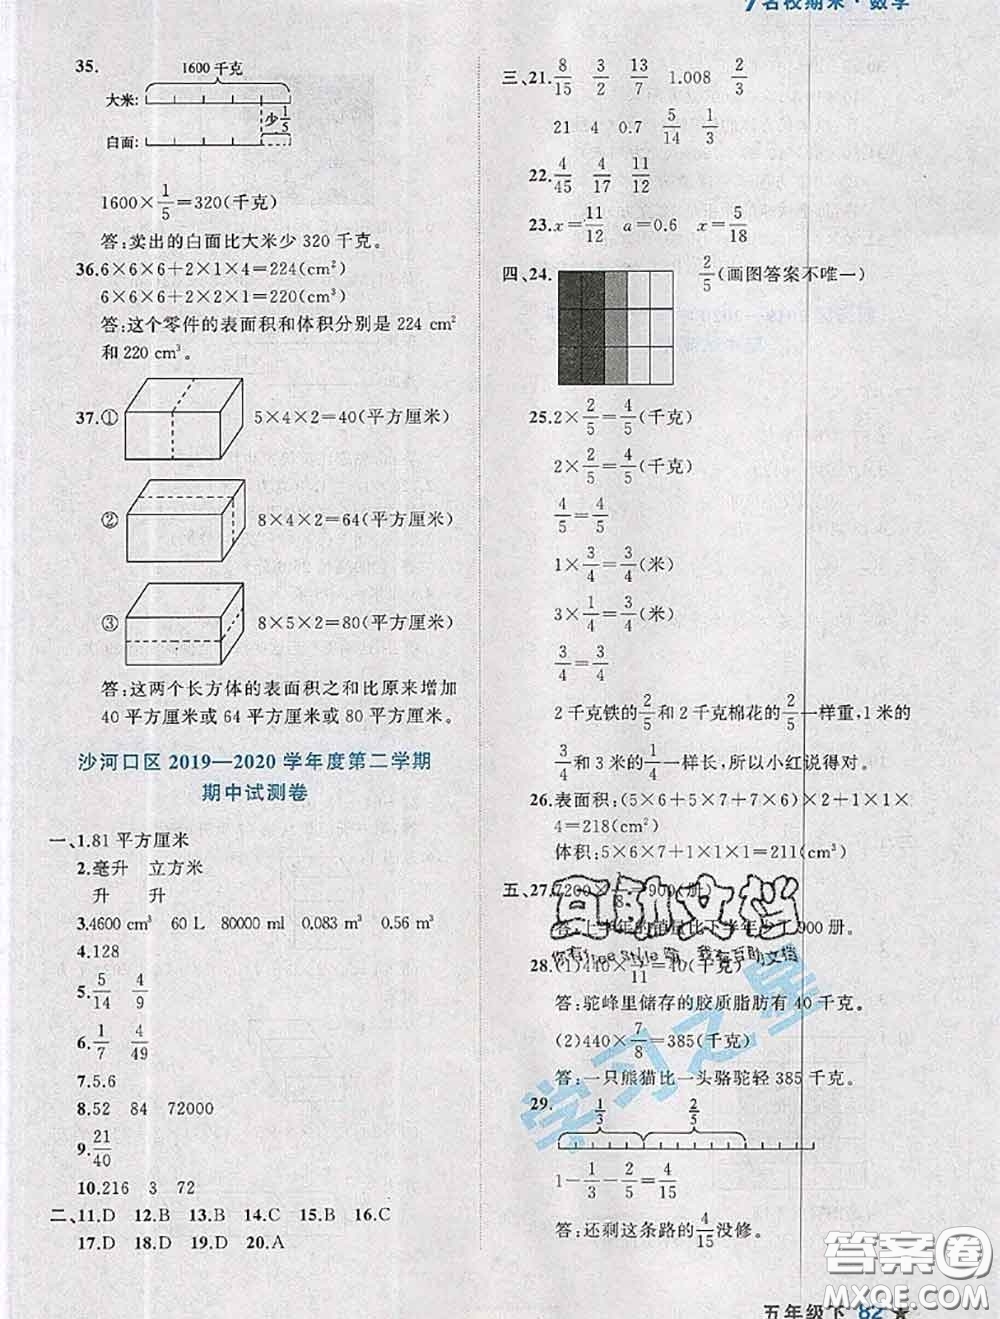 名校期末·数学
35.
1600千克
大米:
少1/5
白面:
1600×1/5=320(千克)
答:卖出的白面比大米少320千克。
36.6×6×6+2×1×4=224(cm²)
6×6×6+2×2×1=220(cm³)
答:这个零件的表面积和体积分别是224 cm²
和220 cm³。
37.① 5×4×2=40(平方厘米)
② 8×4×2=64(平方厘米)
③ 8×5×2=80(平方厘米)
答:这两个长方体的表面积之和比原来增加
40平方厘米或64平方厘米或80平方厘米。
沙河口区2019—2020学年度第二学期
期中试测卷
一、1.81平方厘米
2.毫升 立方米
升 升
3.4600 cm³ 60 L 80000 ml 0.083 m³ 0.56 m³
4.128
5.5/14 4/9
6.1/7 4/49
7.5.6
8.52 84 72000
9.21/40
10.216 3 72
二、11.D 12.B 13.B 14.C 15.B 16.C
17.D 18.D 19.D 20.A
三、21.8/15 3/2 13/7 1.008 2/3
21 4 0.7 5/14 1/3
22.4/45 4/17 11/12
23.x=11/12 a=0.6 x=5/18
四、24. 2/5(画图答案不唯一)
25.2×2/5=4/5(千克)
2×2/5=4/5(千克)
4/5=4/5
1×3/4=3/4(米)
3×1/4=3/4(米)
3/4=3/4
2千克铁的2/5和2千克棉花的2/5一样重,1米的
3/4和3米的1/4一样长,所以小红说得对。
26.表面积:(5×6+5×7+6×7)×2+1×1×
4=218(cm²)
体积:5×6×7+1×1×1=211(cm³)
五、27.7200×1/8=900(册)
答:上半年的销量比下半年少了900册。
互动文档
你有free style 嘛 我有互助文档
28.(1)440×1/11=40(千克)
答:驼峰里储存的胶质脂肪有40千克。
(2)440×7/8=385(千克)
答:一只熊猫比一头骆驼轻385千克。
学习之星
29. 1/3 2/5
1-1/3-2/5=4/15
答:还剩这条路的4/15没修。
答案圈
MXQE.COM
五年级下 82 ★